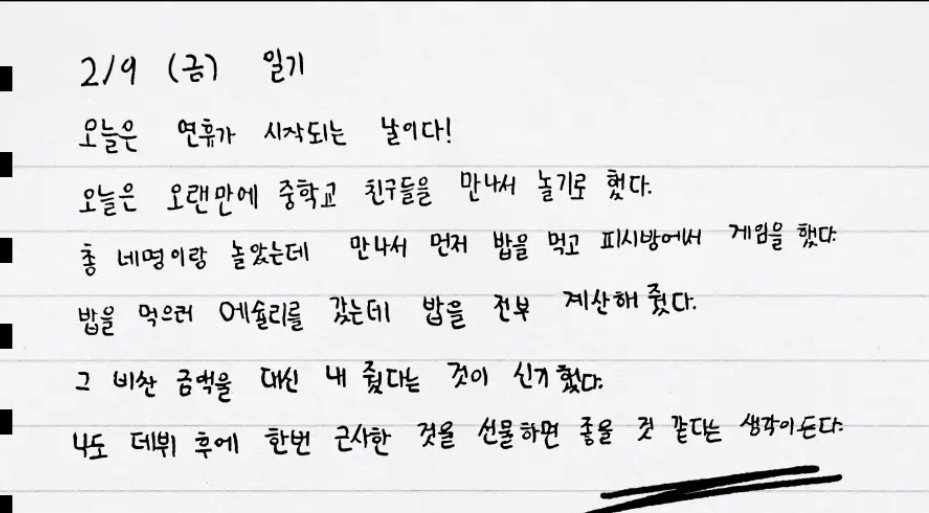 2/9 (금) 일기
오늘은 연휴가 시작되는 날이다!
오늘은 오랜만에 중학교 친구들을 만나서 놀기로 했다.
총 네명이랑 놀았는데 만나서 먼저 밥을 먹고 피시방에서 게임을 했다.
밥을 먹으러 에슐리를 갔는데 밥을 전부 계산해 줬다.
그 비싼 금액을 대신 내 줬다는 것이 신기했다.
나도 데뷔 후에 한번 근사한 것을 선물하면 좋을 것 같다는 생각이 든다.